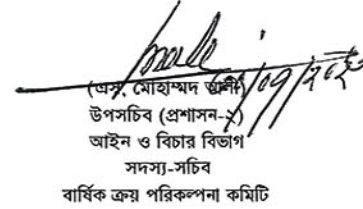 (এস. মোহাম্মদ আলী)
উপসচিব (প্রশাসন-২)
আইন ও বিচার বিভাগ
সদস্য-সচিব
বার্ষিক ক্রয় পরিকল্পনা কমিটি